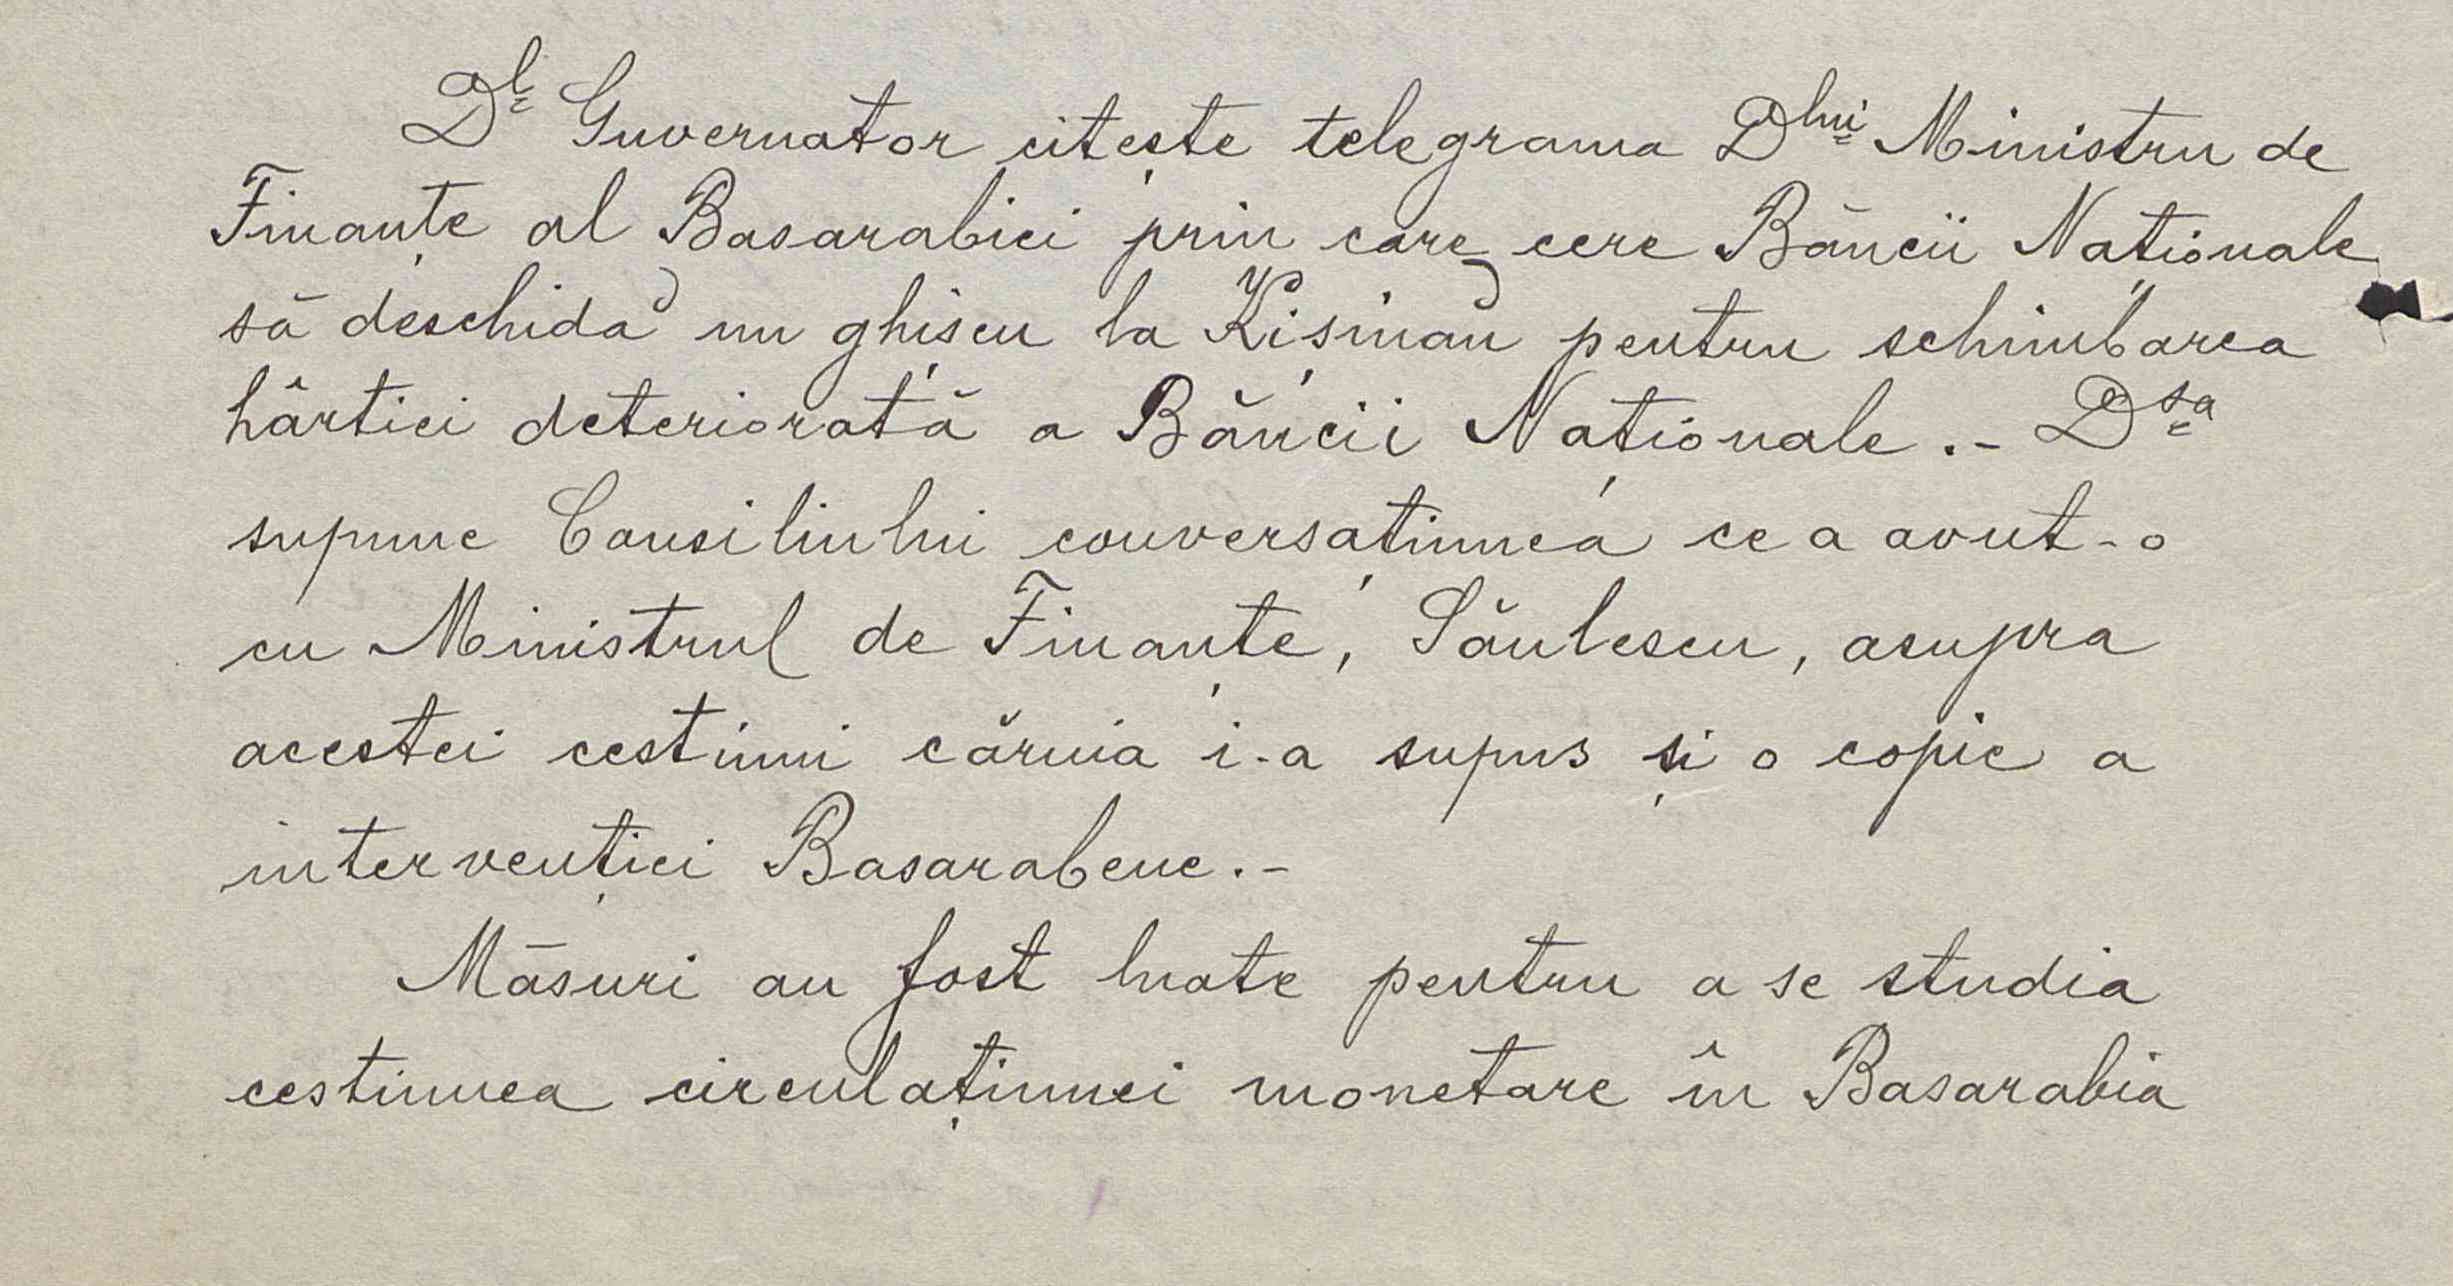 Dl Guvernator citește telegrama Dlui Ministru de
Finanțe al Basarabiei prin care cere Băncii Naționale
să deschidă un ghișeu la Kișinău pentru schimbarea
hârtiei deteriorată a Băncii Naționale.- Dsa
supune Consiliului conversațiunea ce a avut-o
cu Ministrul de Finanțe, Săulescu, asupra
acestei cestiuni căruia i-a supus și o copie a
intervenției Basarabene.-
Măsuri au fost luate pentru a se studia
cestiunea circulațiunei monetare în Basarabia